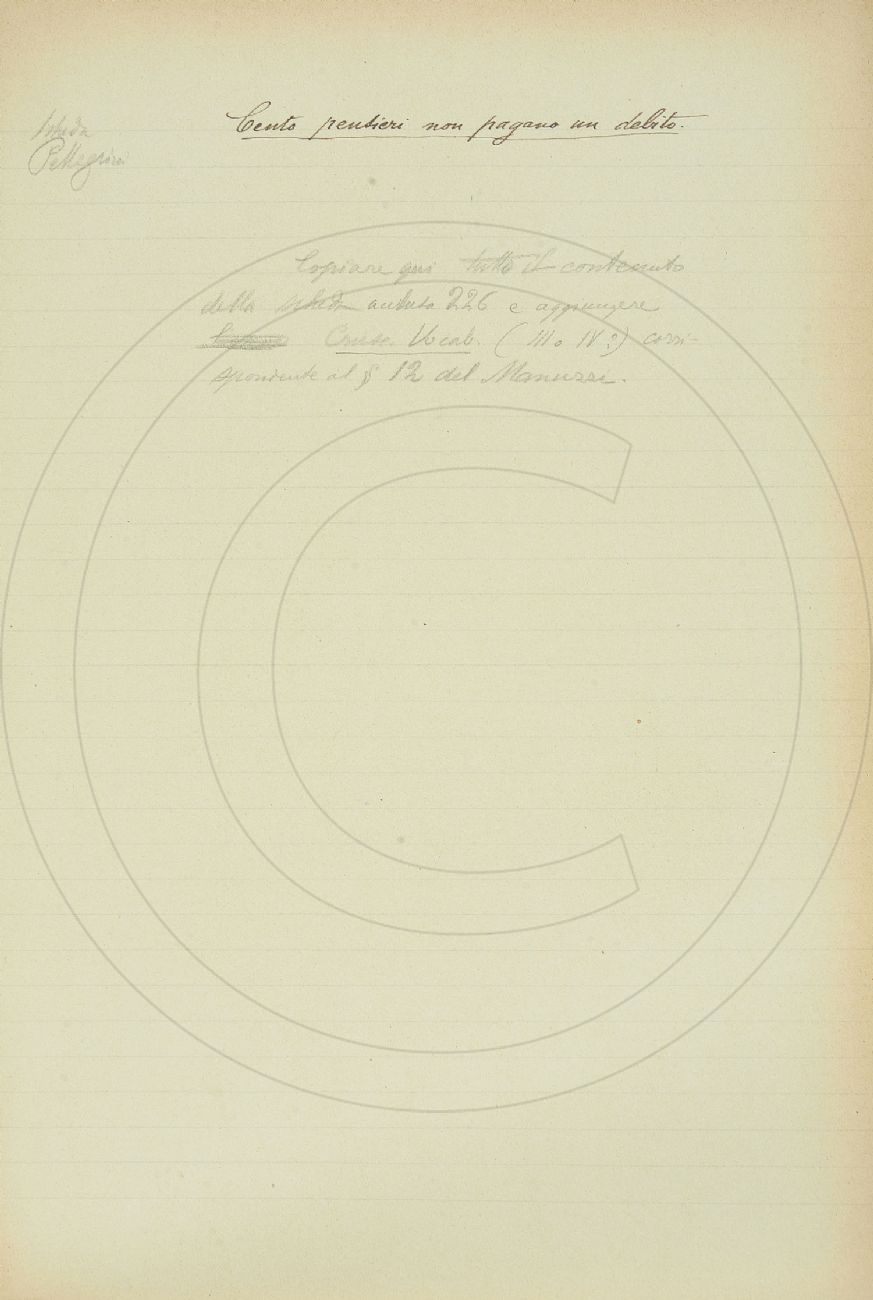 Scheda
Pellegrini
Cento pensieri non pagano un debito.
Copiare qui tutto il contenuto
della scheda acclusa 226 e aggiungere
Crusc. Vocab. (III o IV?) corri-
spondente al § 12 del Manuzzi.